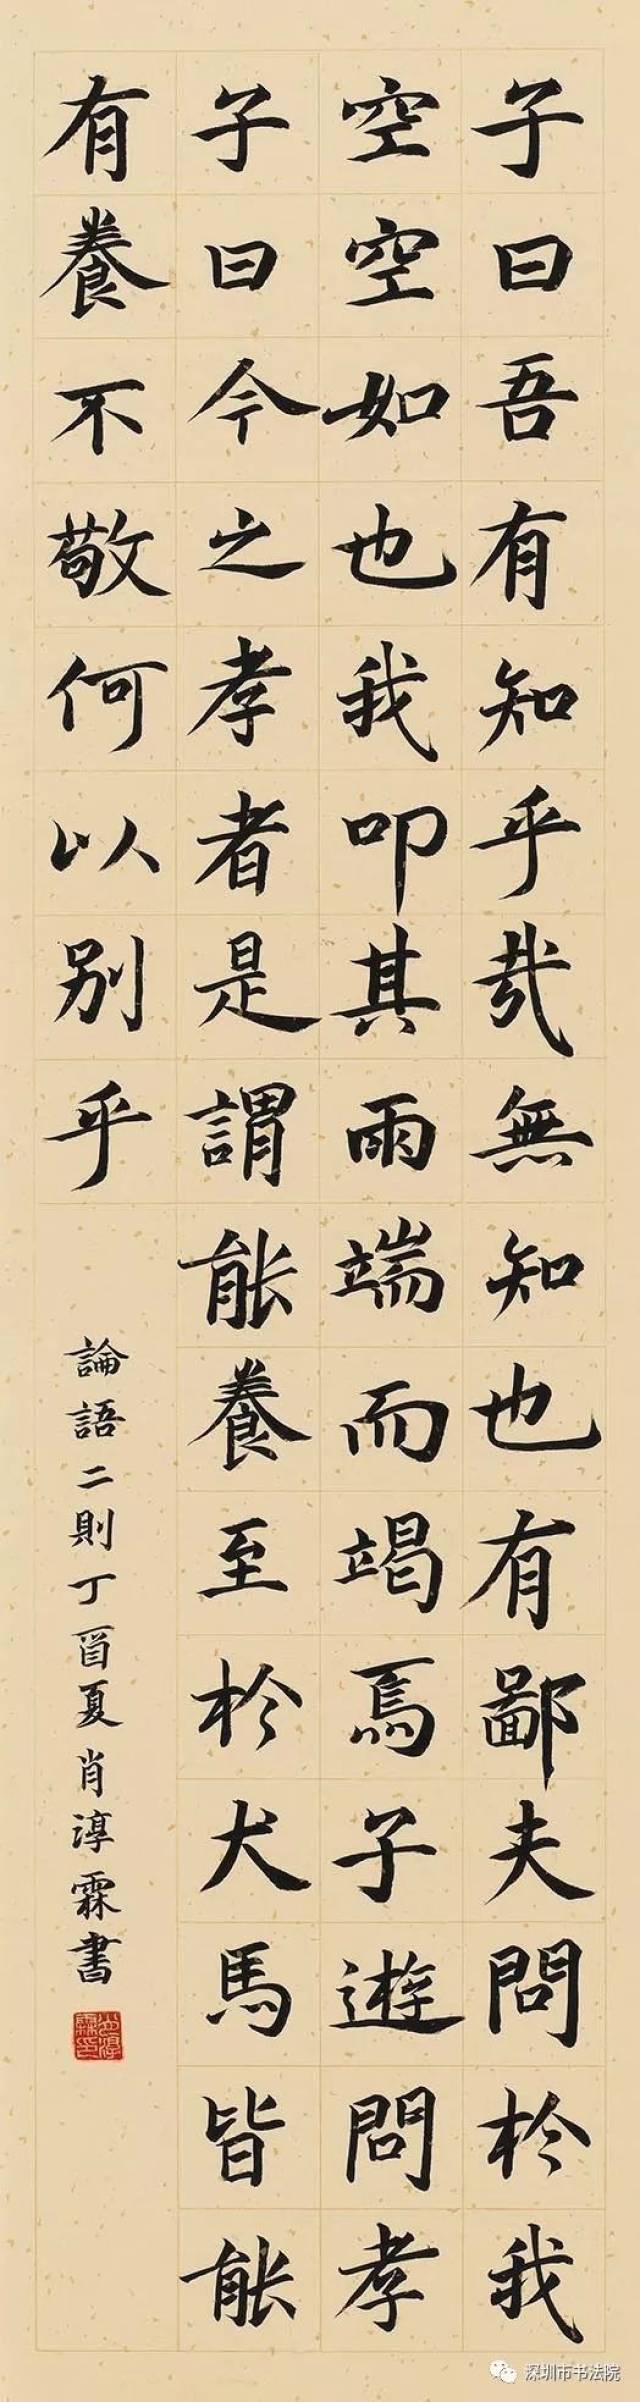 子曰吾有知乎哉無知也有鄙夫問於我
空空如也我叩其兩端而竭焉子遊問孝
子曰今之孝者是謂能養至於犬馬皆能
有養不敬何以別乎
論語二則丁酉夏肖淳霖書
深圳市书法院